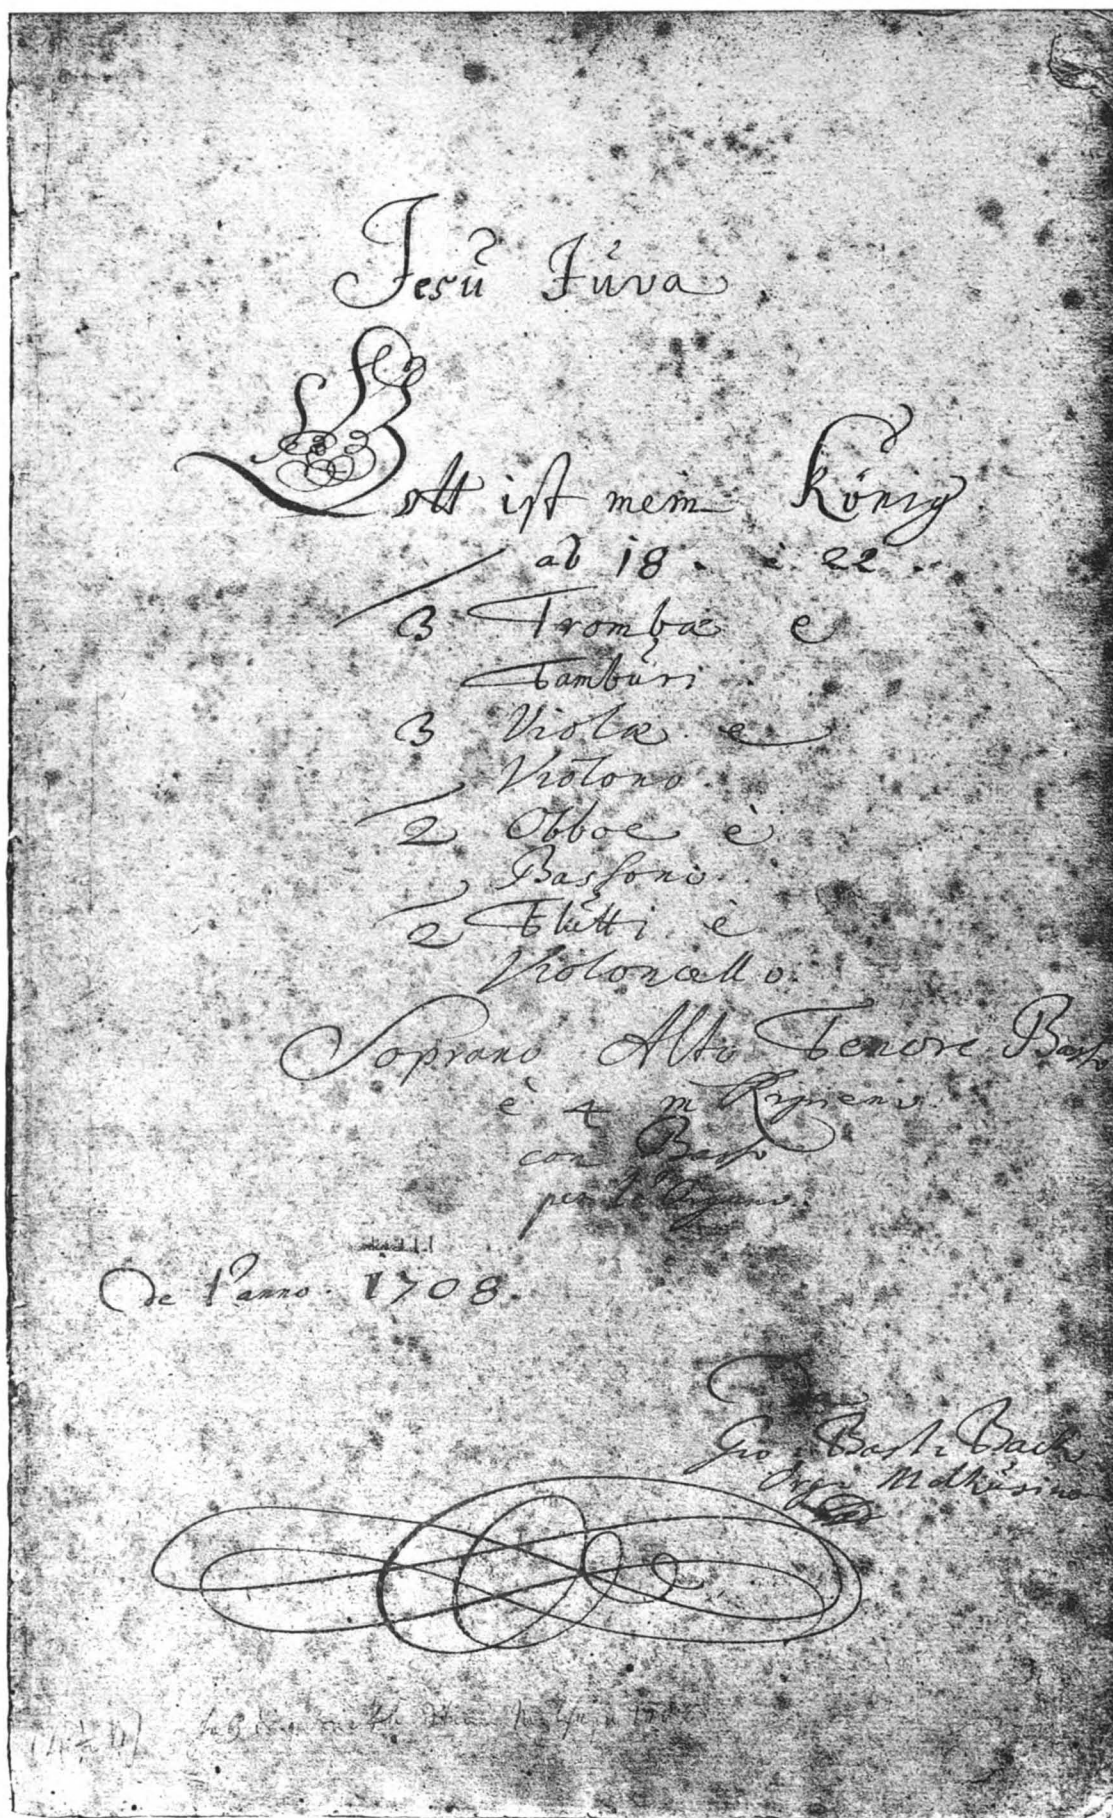 Jesu Juva
Gott ist mein König
ab 18. è 22.
3 Trombæ e
Tamburi
3 Violæ e
Violono
2 Obboe è
Bassono
2 Flutti è
Violoncello.
Soprano Alto Tenore Basso
è 4 in Ripieno
con Basso
per l'Organo.
de l'anno. 1708.
Gio: Bast: Bach
Org: Molhusino